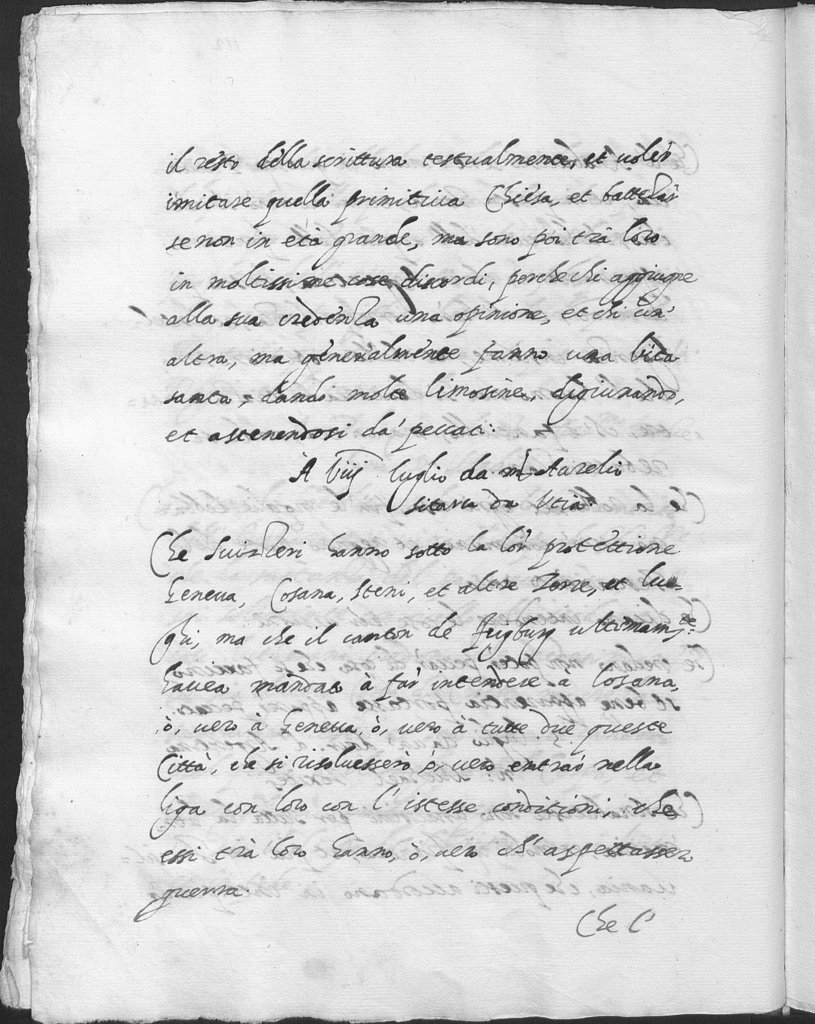 il resto della scrittura testualmente, et voler
imitare quella primitiua Chiesa, et battezar
se non in età grande, ma sono poi trà loro
in moltissime cose discordi, perche chi aggiugne
alla sua credenza una opinione, et chi un'
altra, ma generalmente fanno una vita
santa, dando molte limosine, digiunando,
et astenendosi da' peccati:
A viij luglio da m. Aurelio
sitaria da
Che Suizzeri hanno sotto la lor' protettione
Geneua, Losana, Steni, et altre Terre, et luo-
ghi, ma che il canton de ultimam.te
hauea mandato à far' intendere à Losana,
ò, uero à Geneua, ò, uero à tutte due queste
Città, che si risoluessero ò, uero entrar' nella
liga con loro con l' istesse conditioni, che
essi trà loro hanno, ò, uero ch' aspettassero
guerra.
Che l'